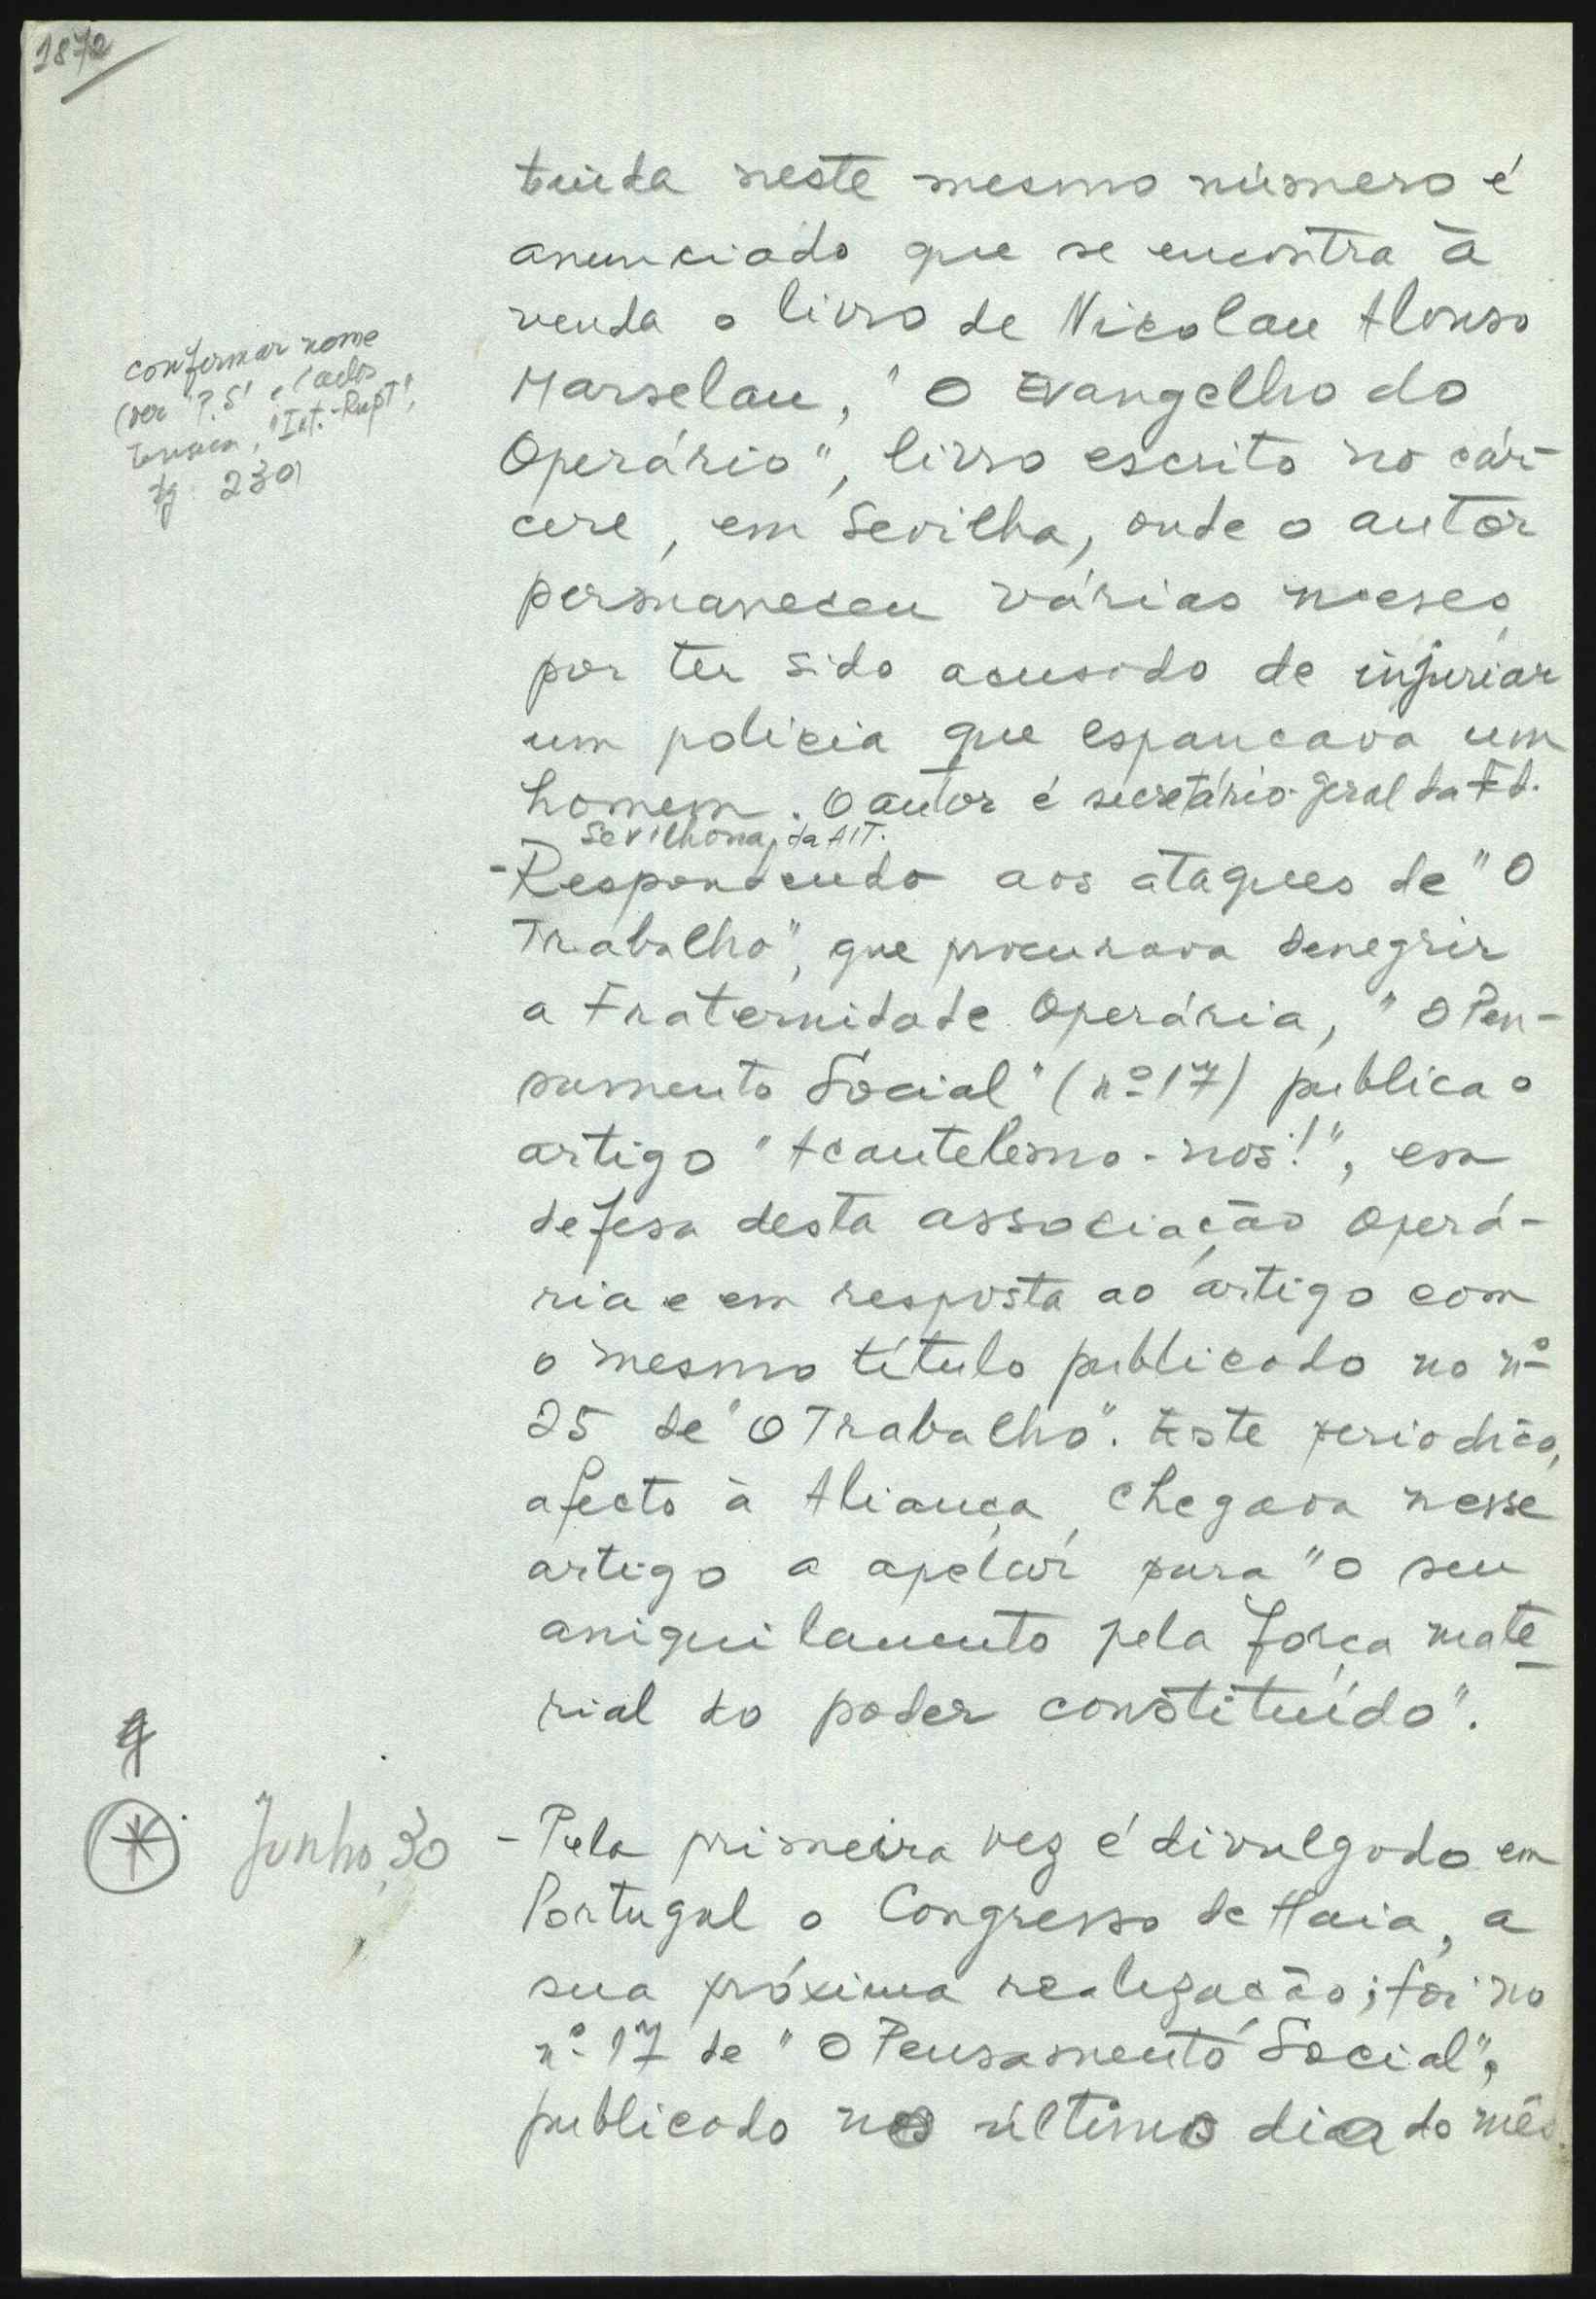 1872
tuída neste mesmo número é
anunciado que se encontra à
venda o livro de Nicolau Alonso
Marselau, "O Evangelho do
Operário", livro escrito no cár-
cere, em Sevilha, onde o autor
permaneceu vários meses
por ter sido acusado de injuriar
um polícia que espancava um
homem. O autor é secretário-geral da Fd.
Sevilhana, da AIT.
- Respondendo aos ataques de "O
Trabalho", que procurava denegrir
a Fraternidade Operária, "O Pen-
samento Social" (nº 17) publica o
artigo "Acautelemo-nos!", em
defesa desta associação operá-
ria e em resposta ao artigo com
o mesmo título publicado no nº
25 de "O Trabalho". Este periódico,
afecto à Aliança, chegava nesse
artigo a apelar para "o seu
aniquilamento pela força mate-
rial do poder constituído".
- Pela primeira vez é divulgado em
Portugal o Congresso de Haia, a
sua próxima realização; foi no
nº 17 de "O Pensamento Social",
publicado no último dia do mês.
confirmar nome
(ver "P.S" e Carlos
"Int.-Rupt",
pg 239
*
Junho, 30